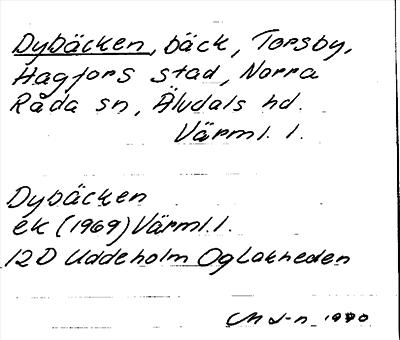 Dybäcken, bäck, Torsby,
Hagfors stad, Norra
Råda sn, Älvdals hd.
Värml. l.
Dybäcken
ek (1969) Värml. l.
12D Uddeholm Oglakheden
CM J-n 1970